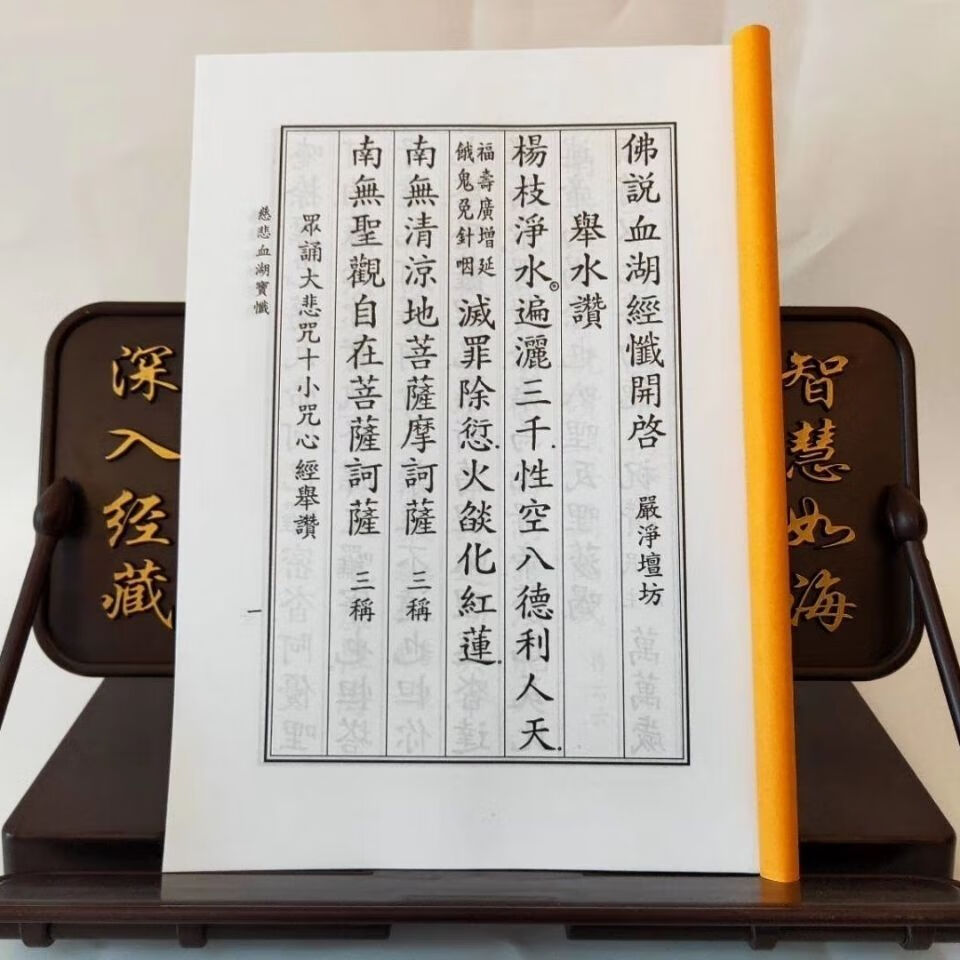 佛說血湖經懺開啓 嚴淨壇坊
舉水讚
楊枝淨水。遍灑三千.性空八德利人天.
福壽廣增延
餓鬼免針咽
滅罪除愆.火燄化紅蓮.
南無清涼地菩薩摩訶薩 三稱
南無聖觀自在菩薩訶薩 三稱
眾誦大悲咒十小咒心經舉讚
慈悲血湖寶懺
一
智慧如海
深入经藏